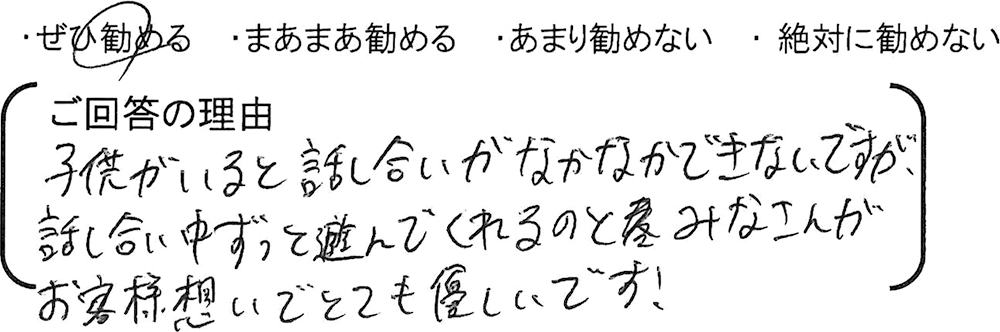 ・ぜひ勧める ・まあまあ勧める ・あまり勧めない ・絶対に勧めない
ご回答の理由
子供がいると話し合いがなかなかできないですが、
話し合い中ずっと遊んでくれるのと みなさんが
お客様想いでとても優しいです!